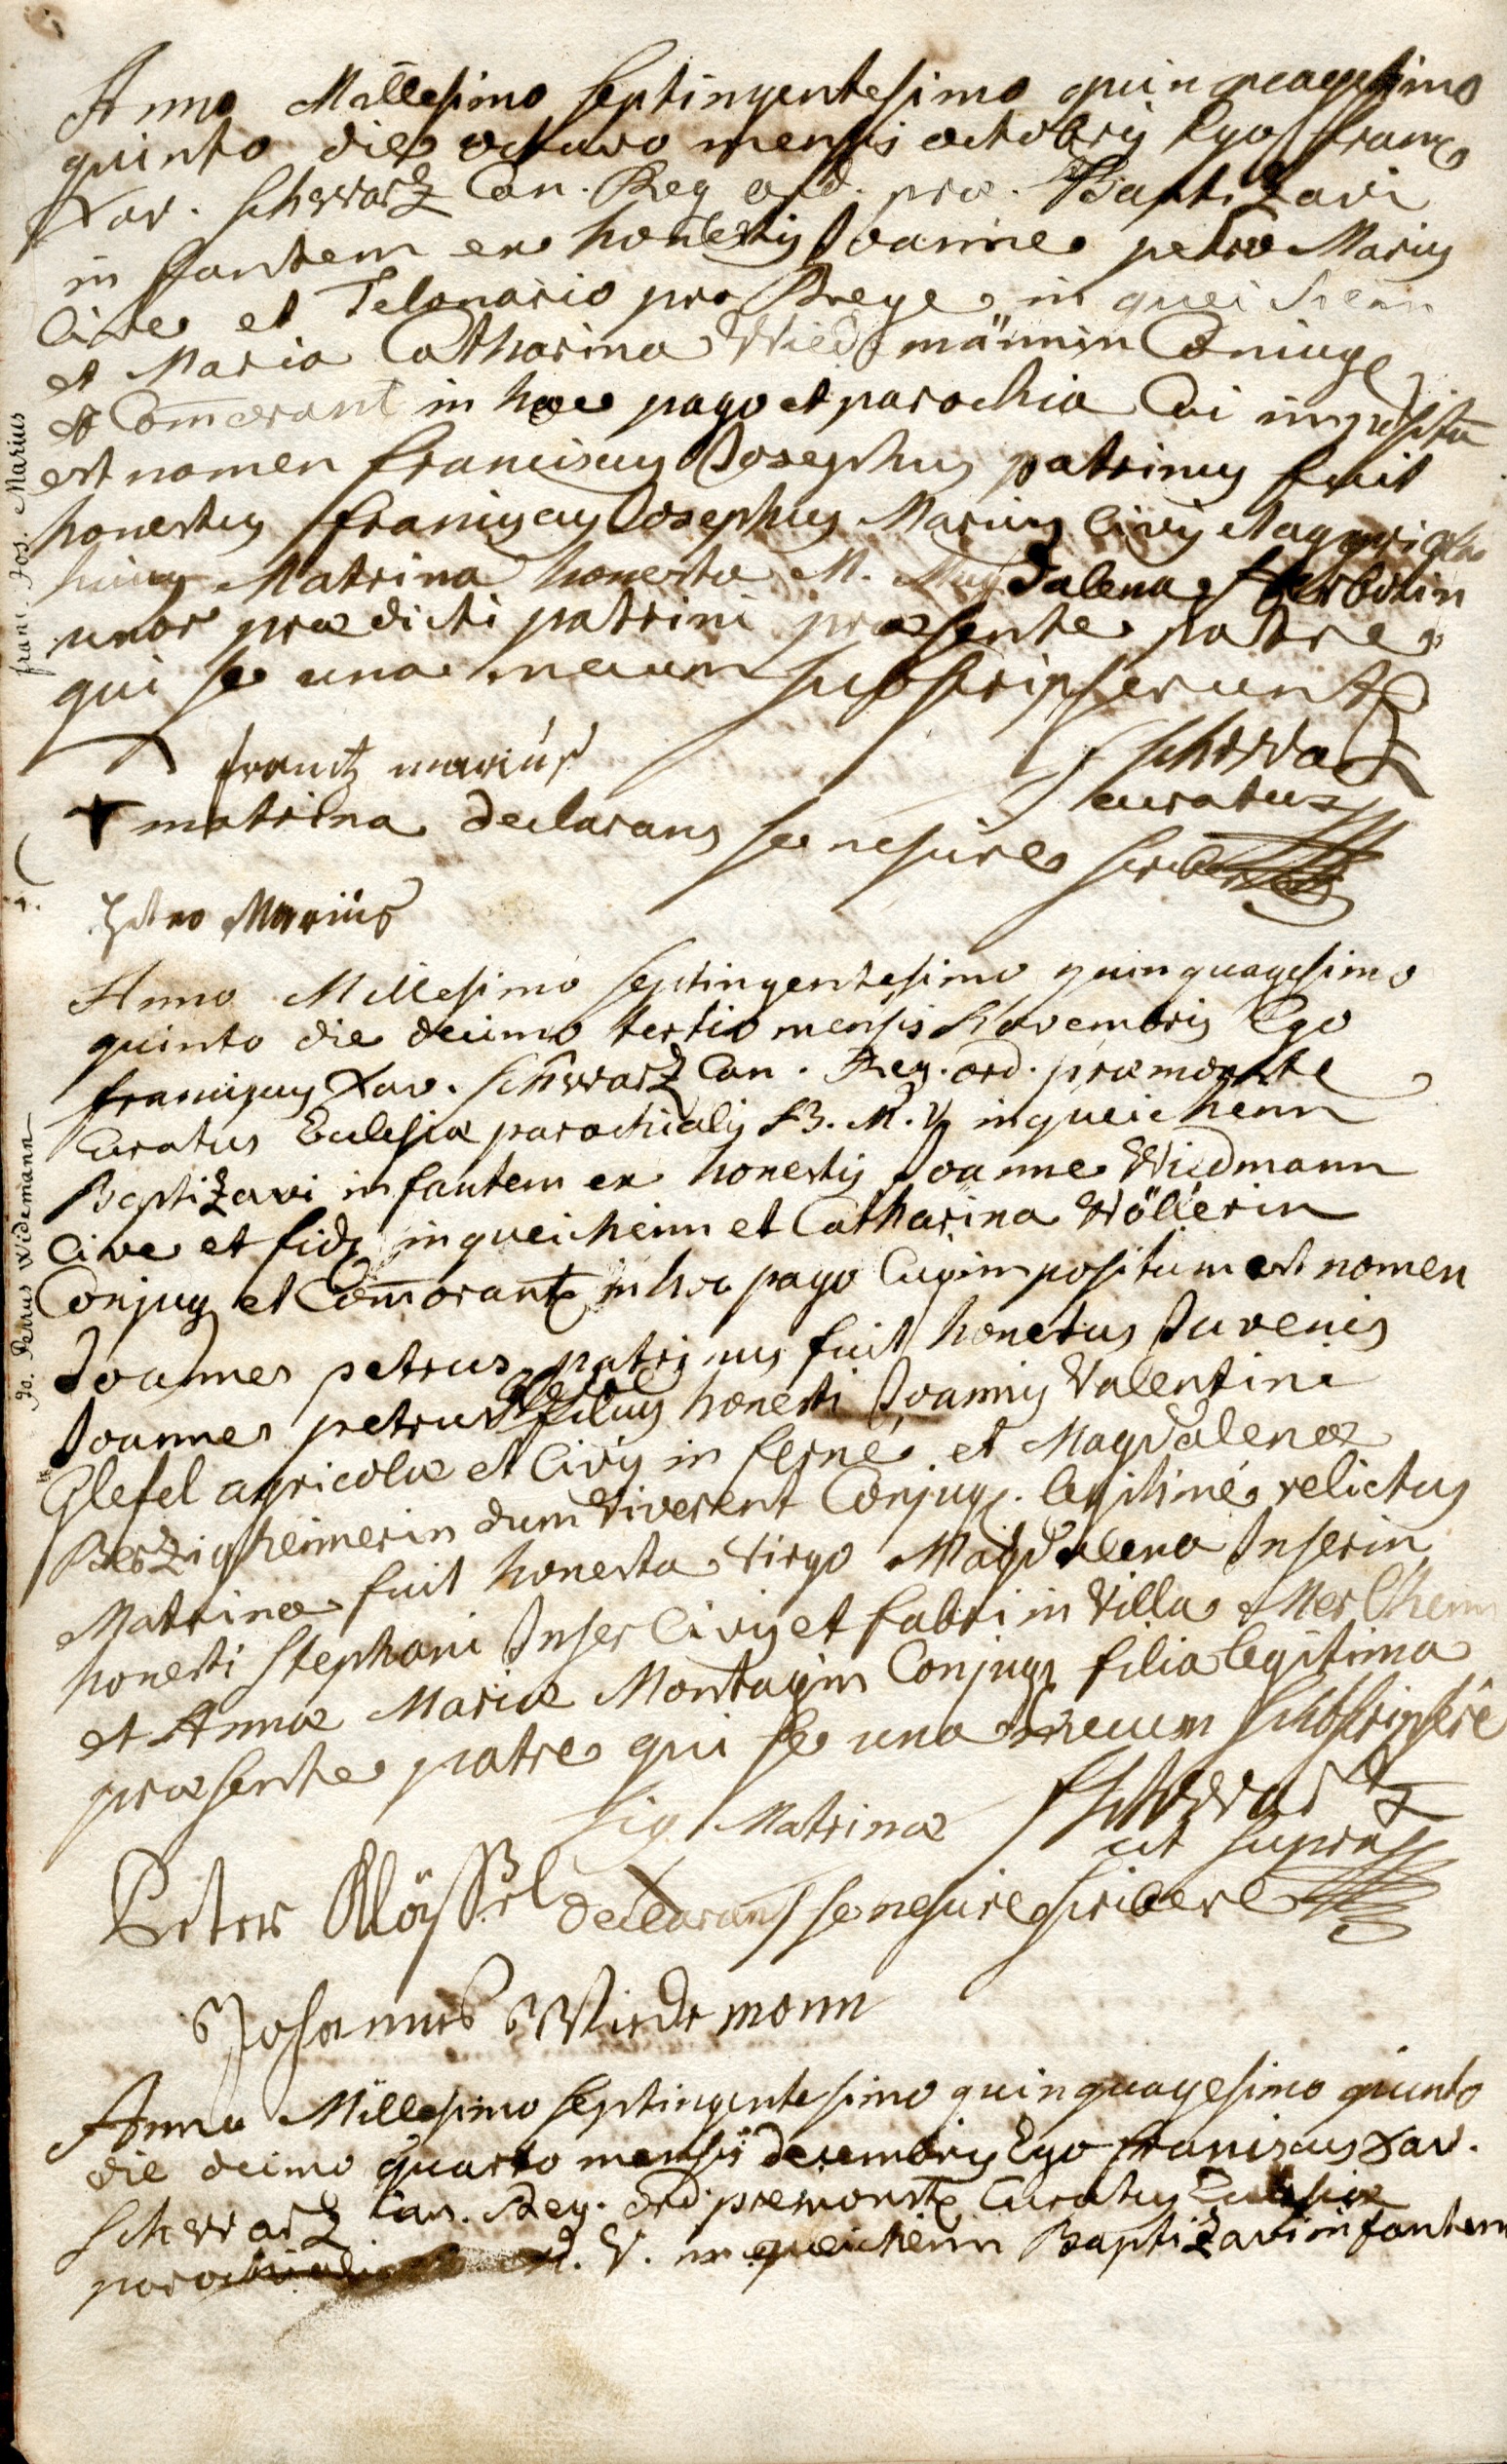 Anno Millesimo septingentesimo quinquagesimo
quinto die octavo mensis octobris Ego franc
Xav. Schwartz Can. Reg ord. præ. Baptizavi
infantem ex honestis Joanne petro Marius
Cive et Telonario pro Rege in queichenn
et Maria Catharina Wiedmännin Coniuge
et Com̄orant in hoc pago et parochia Cui impositū
est nomen franciscus Josephus patrinus fuit
honestus franciscus Josephus Marius Civis
huius Matrina honesta M. Magdalena Herbdin
uxor prædicti patrini præsente patre
qui se una mecum subscripserunt
frantz marius
Schwartz
curatus
+ matrina declarans se nescire scribere
Petro Marius
franc. Jos. Marius
Anno Millesimo septingentesimo quinquagesimo
quinto die decimo tertio mensis Novembris Ego
franciscus Xav. Schwartz Can. Reg. ord. præmonste
Curatus Eclesiæ parochialis B. M. V in queichenn
Baptizavi infantem ex honestis Joanne Wiedmann
Cive et in queichenn et Catharina Wöllerin
Conjug et Com̄orant in hoc pago Cui impositum est nomen
Joannes petrus patrinus fuit honestus Juvenis
Joannes petrus filius honesti Joannis Valentini
Glesel agricolæ et Civis in et Magdalenæ
Berzigheimerin dum viverent Conjug. legitime relictus
Matrina fuit honesta virgo Magdalena Inserin
honesti Stephani Inser Civis et fabri in Villa Merlhenn
et Annæ Mariæ Montagin Conjug filia legitima
præsente patre qui se una mecum subscripsere
Schwartz
ut supra
Sig Matrinæ
Peter Klösßel declarans se nescire scribere
Johannes Wiedemann
Jo. Petrus Widemann
Anno Millesimo septingentesimo quinquagesimo quinto
die decimo quarto mensis decembris Ego franciscus Xav.
Schwartz Can. Reg. ord. premonst Curatus Eclesiæ
parochialis M. V. in queichenn Baptizavi infantem